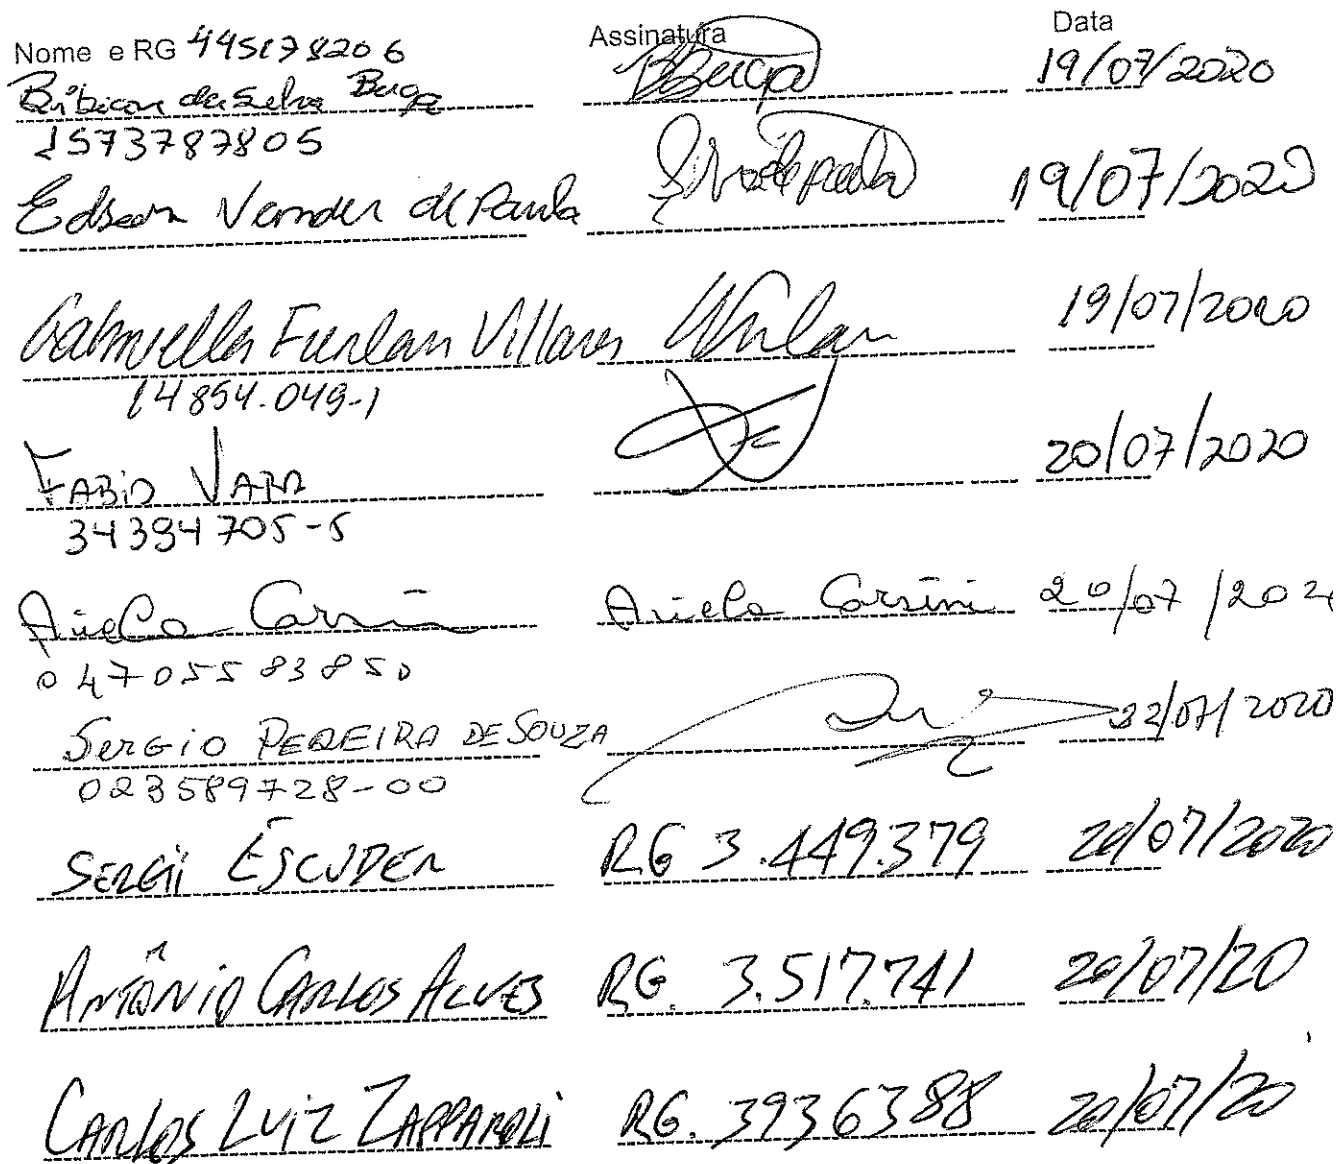 Nome e RG 445178206 Assinatura Data
da Silva BBuga 19/07/2020
1573787805
Edson Vander de Paula 19/07/2020
Gabriella Furlan Villares Furlan 19/07/2020
14854.049-1
Fabio Vara 20/07/2020
34394705-5
Ariela Corsini Ariela Corsini 20/07/202
04705583850
Sergio PEREIRA DE SOUZA 22/07/2020
023589728-00
SERGIO ESCUDER RG 3.449.379 20/07/2020
ANTÔNIO CARLOS ALVES RG. 3.517.741 20/07/20
CARLOS LUIZ ZAPPAROLI RG. 3936388 20/07/20